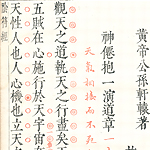 黃帝公孫軒轅著
神僊抱一演道章
觀天之道執天之行盡矣
五賊在心施行於天宇宙
天性人也人心機也立天
陰符經